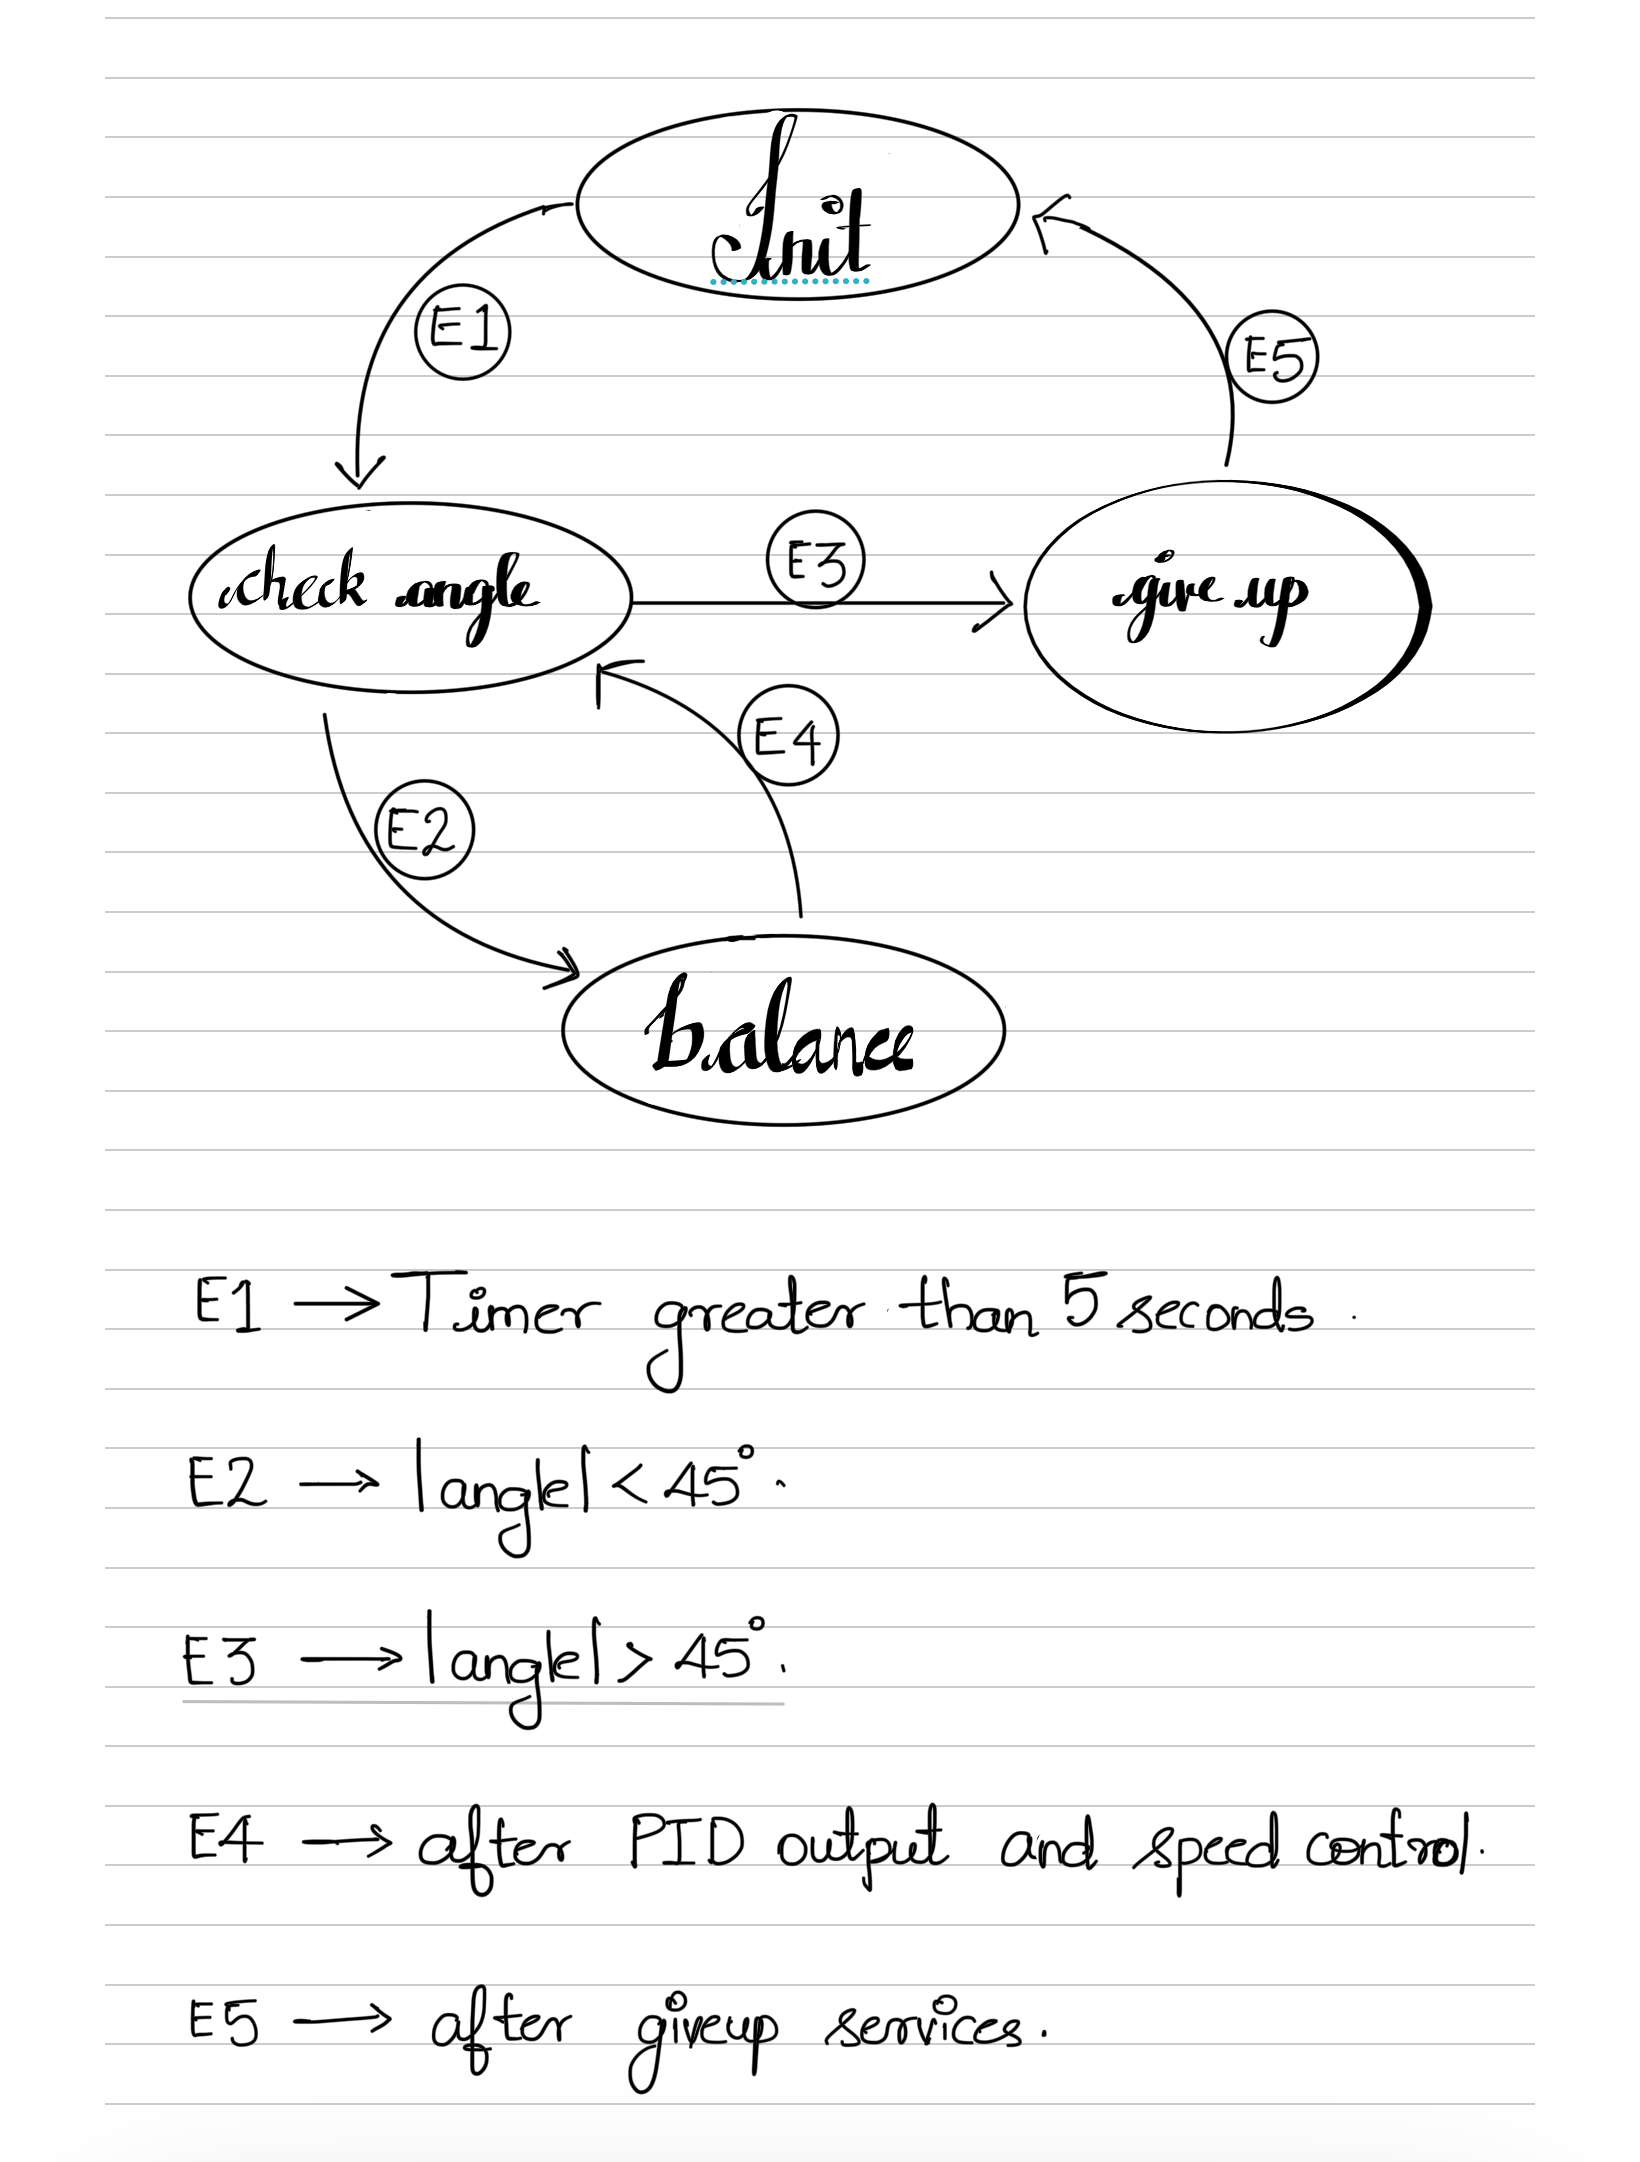 Init
E1
E5
check angle
E3
give up
E4
E2
balance
E1 → Timer greater than 5 seconds.
E2 → |angle| < 45°.
E3 → |angle| > 45°.
E4 → after PID output and speed control.
E5 → after giveup services.